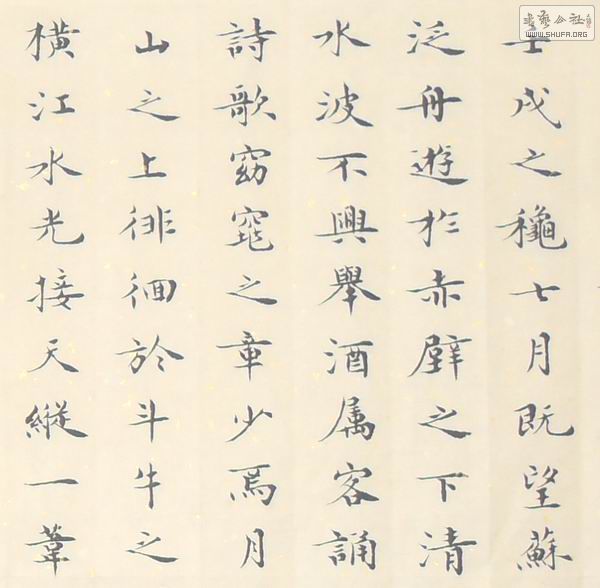 壬戌之穐七月既望蘇
泛舟遊於赤壁之下清
水波不興舉酒属客誦
詩歌窈窕之章少焉月
山之上徘徊於斗牛之
橫江水光接天縱一葦
書藝公社
WWW.SHUFA.ORG